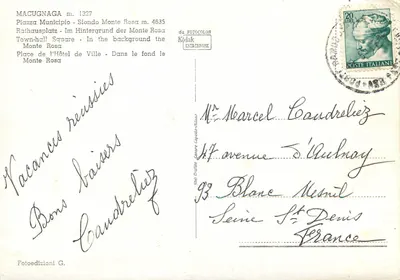 MACUGNAGA m. 1327
Piazza Municipio - Sfondo Monte Rosa m. 4635
Rathausplatz - Im Hintergrund der Monte Rosa
Town-hall Square - In the background the
Monte Rosa
Place de l'Hôtel de Ville - Dans le fond le
Monte Rosa
da FOTOCOLOR
Kodak
EKTACHROME
POSTE ITALIANE
Vacances réussies
Bons baisers
Caudreliez
Mr Marcel Caudreliez
47 avenue d'Aulnay
93 Blanc Mesnil
Seine St Denis
France
Fotoedizioni G.